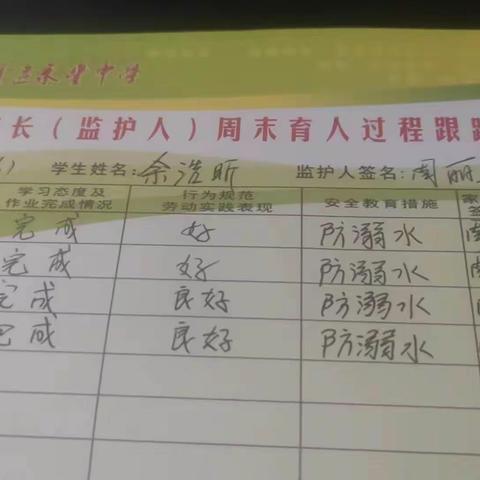 立永望中学
长（监护人）周末育人过程跟踪
学生姓名：余浩昕 监护人签名：周丽
学习态度及作业完成情况 行为规范劳动实践表现 安全教育措施 家
完成 好 防溺水
完成 好 防溺水
完成 良好 防溺水
完成 良好 防溺水